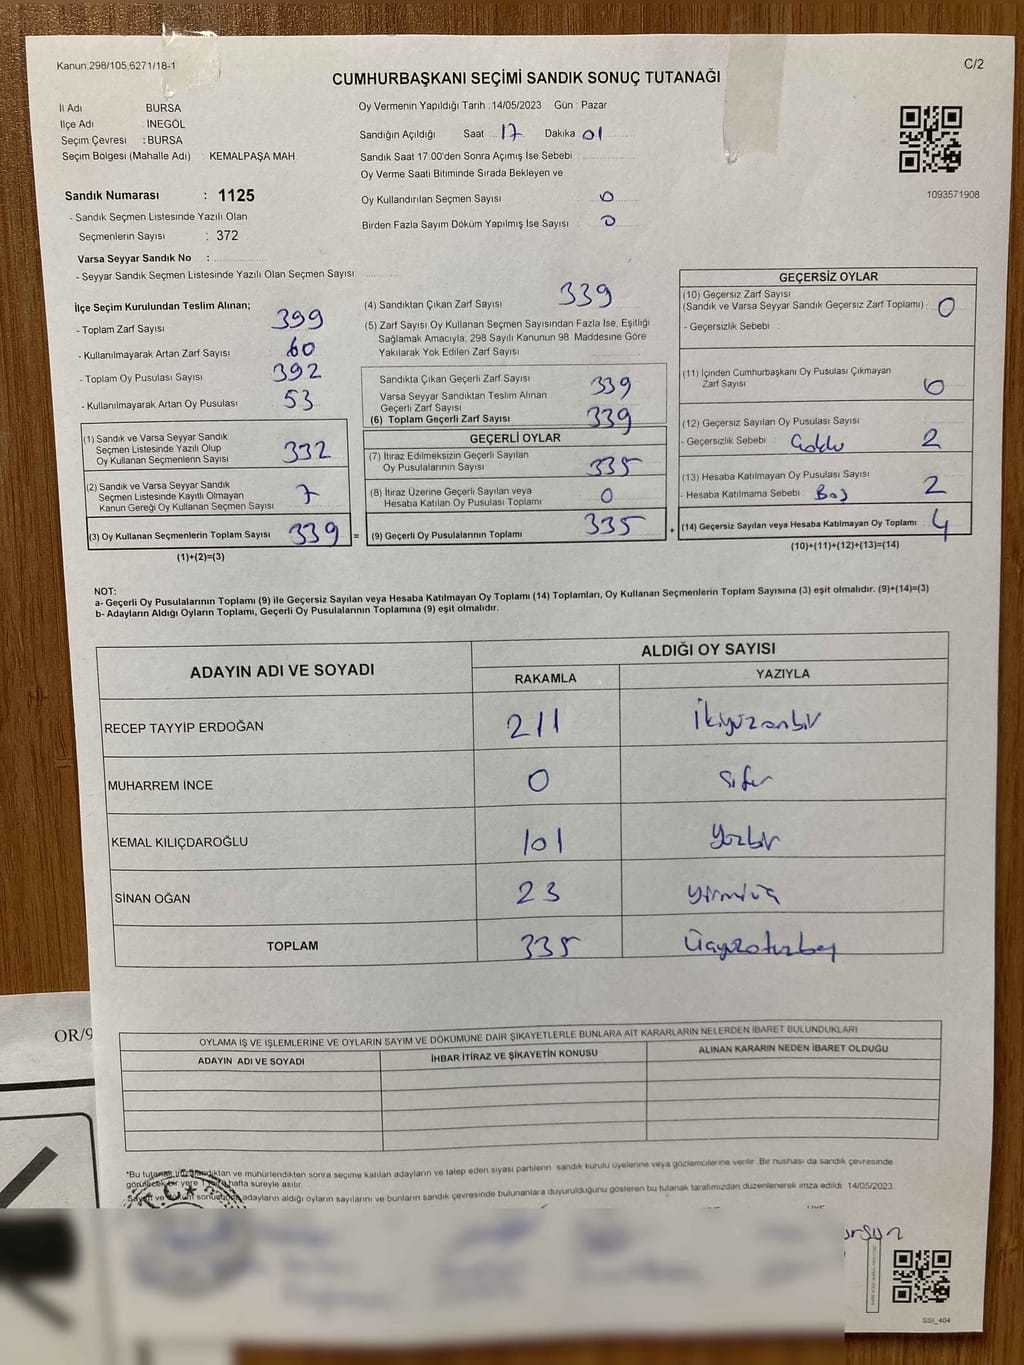 Kanun:298/105,6271/18-1
C/2
CUMHURBAŞKANI SEÇİMİ SANDIK SONUÇ TUTANAĞI
İl Adı BURSA
İlçe Adı İNEGÖL
Seçim Çevresi : BURSA
Seçim Bölgesi (Mahalle Adı) : KEMALPAŞA MAH
Sandık Numarası : 1125
- Sandık Seçmen Listesinde Yazılı Olan
Seçmenlerin Sayısı : 372
Varsa Seyyar Sandık No :
- Seyyar Sandık Seçmen Listesinde Yazılı Olan Seçmen Sayısı
Oy Vermenin Yapıldığı Tarih : 14/05/2023 Gün : Pazar
Sandığın Açıldığı Saat 17 Dakika 01
Sandık Saat 17:00'den Sonra Açımış İse Sebebi :
Oy Verme Saati Bitiminde Sırada Bekleyen ve
Oy Kullandırılan Seçmen Sayısı : 0
Birden Fazla Sayım Döküm Yapılmış İse Sayısı : 0
1093571908
İlçe Seçim Kurulundan Teslim Alınan;
- Toplam Zarf Sayısı 399
- Kullanılmayarak Artan Zarf Sayısı 60
- Toplam Oy Pusulası Sayısı 392
- Kullanılmayarak Artan Oy Pusulası 53
(1) Sandık ve Varsa Seyyar Sandık
Seçmen Listesinde Yazılı Olup
Oy Kullanan Seçmenlerin Sayısı 332
(2) Sandık ve Varsa Seyyar Sandık
Seçmen Listesinde Kayıtlı Olmayan
Kanun Gereği Oy Kullanan Seçmen Sayısı 7
(3) Oy Kullanan Seçmenlerin Toplam Sayısı 339 =
(1)+(2)=(3)
(4) Sandıktan Çıkan Zarf Sayısı 339
(5) Zarf Sayısı Oy Kullanan Seçmen Sayısından Fazla İse, Eşitliği
Sağlamak Amacıyla, 298 Sayılı Kanunun 98. Maddesine Göre
Yakılarak Yok Edilen Zarf Sayısı
Sandıkta Çıkan Geçerli Zarf Sayısı 339
Varsa Seyyar Sandıktan Teslim Alınan
Geçerli Zarf Sayısı
(6) Toplam Geçerli Zarf Sayısı 339
GEÇERLİ OYLAR
(7) İtiraz Edilmeksizin Geçerli Sayılan
Oy Pusulalarının Sayısı 335
(8) İtiraz Üzerine Geçerli Sayılan veya
Hesaba Katılan Oy Pusulası Toplamı 0
(9) Geçerli Oy Pusulalarının Toplamı 335 +
GEÇERSİZ OYLAR
(10) Geçersiz Zarf Sayısı
(Sandık ve Varsa Seyyar Sandık Geçersiz Zarf Toplamı) : 0
- Geçersizlik Sebebi :
(11) İçinden Cumhurbaşkanı Oy Pusulası Çıkmayan
Zarf Sayısı 0
(12) Geçersiz Sayılan Oy Pusulası Sayısı
- Geçersizlik Sebebi : 2
(13) Hesaba Katılmayan Oy Pusulası Sayısı
- Hesaba Katılmama Sebebi : Boş 2
(14) Geçersiz Sayılan veya Hesaba Katılmayan Oy Toplamı : 4
(10)+(11)+(12)+(13)=(14)
NOT:
a- Geçerli Oy Pusulalarının Toplamı (9) ile Geçersiz Sayılan veya Hesaba Katılmayan Oy Toplamı (14) Toplamları, Oy Kullanan Seçmenlerin Toplam Sayısına (3) eşit olmalıdır. (9)+(14)=(3)
b- Adayların Aldığı Oyların Toplamı, Geçerli Oy Pusulalarının Toplamına (9) eşit olmalıdır.
ADAYIN ADI VE SOYADI ALDIĞI OY SAYISI
RAKAMLA YAZIYLA
RECEP TAYYİP ERDOĞAN 211 İkiyüzonbir
MUHARREM İNCE 0 Sıfır
KEMAL KILIÇDAROĞLU 101 Yüzbir
SİNAN OĞAN 23 Yirmiüç
TOPLAM 335 Üçyüzotuzbeş
OR/9
OYLAMA İŞ VE İŞLEMLERİNE VE OYLARIN SAYIM VE DÖKÜMÜNE DAİR ŞİKAYETLERLE BUNLARA AİT KARARLARIN NELERDEN İBARET BULUNDUKLARI
ADAYIN ADI VE SOYADI İHBAR İTİRAZ VE ŞİKAYETİN KONUSU ALINAN KARARIN NEDEN İBARET OLDUĞU
*Bu tutanak imzalandıktan ve mühürlendikten sonra seçime katılan adayların ve talep eden siyasi partilerin sandık kurulu üyelerine veya gözlemcilerine verilir. Bir nüshası da sandık çevresinde
görülecek bir yere 1 hafta süreyle asılır.
Sayım ve döküm sonucunda adayların aldığı oyların sayılarını ve bunların sandık çevresinde bulunanlara duyurulduğunu gösteren bu tutanak tarafımızdan düzenlenerek imza edildi. 14/05/2023
SSİ_404